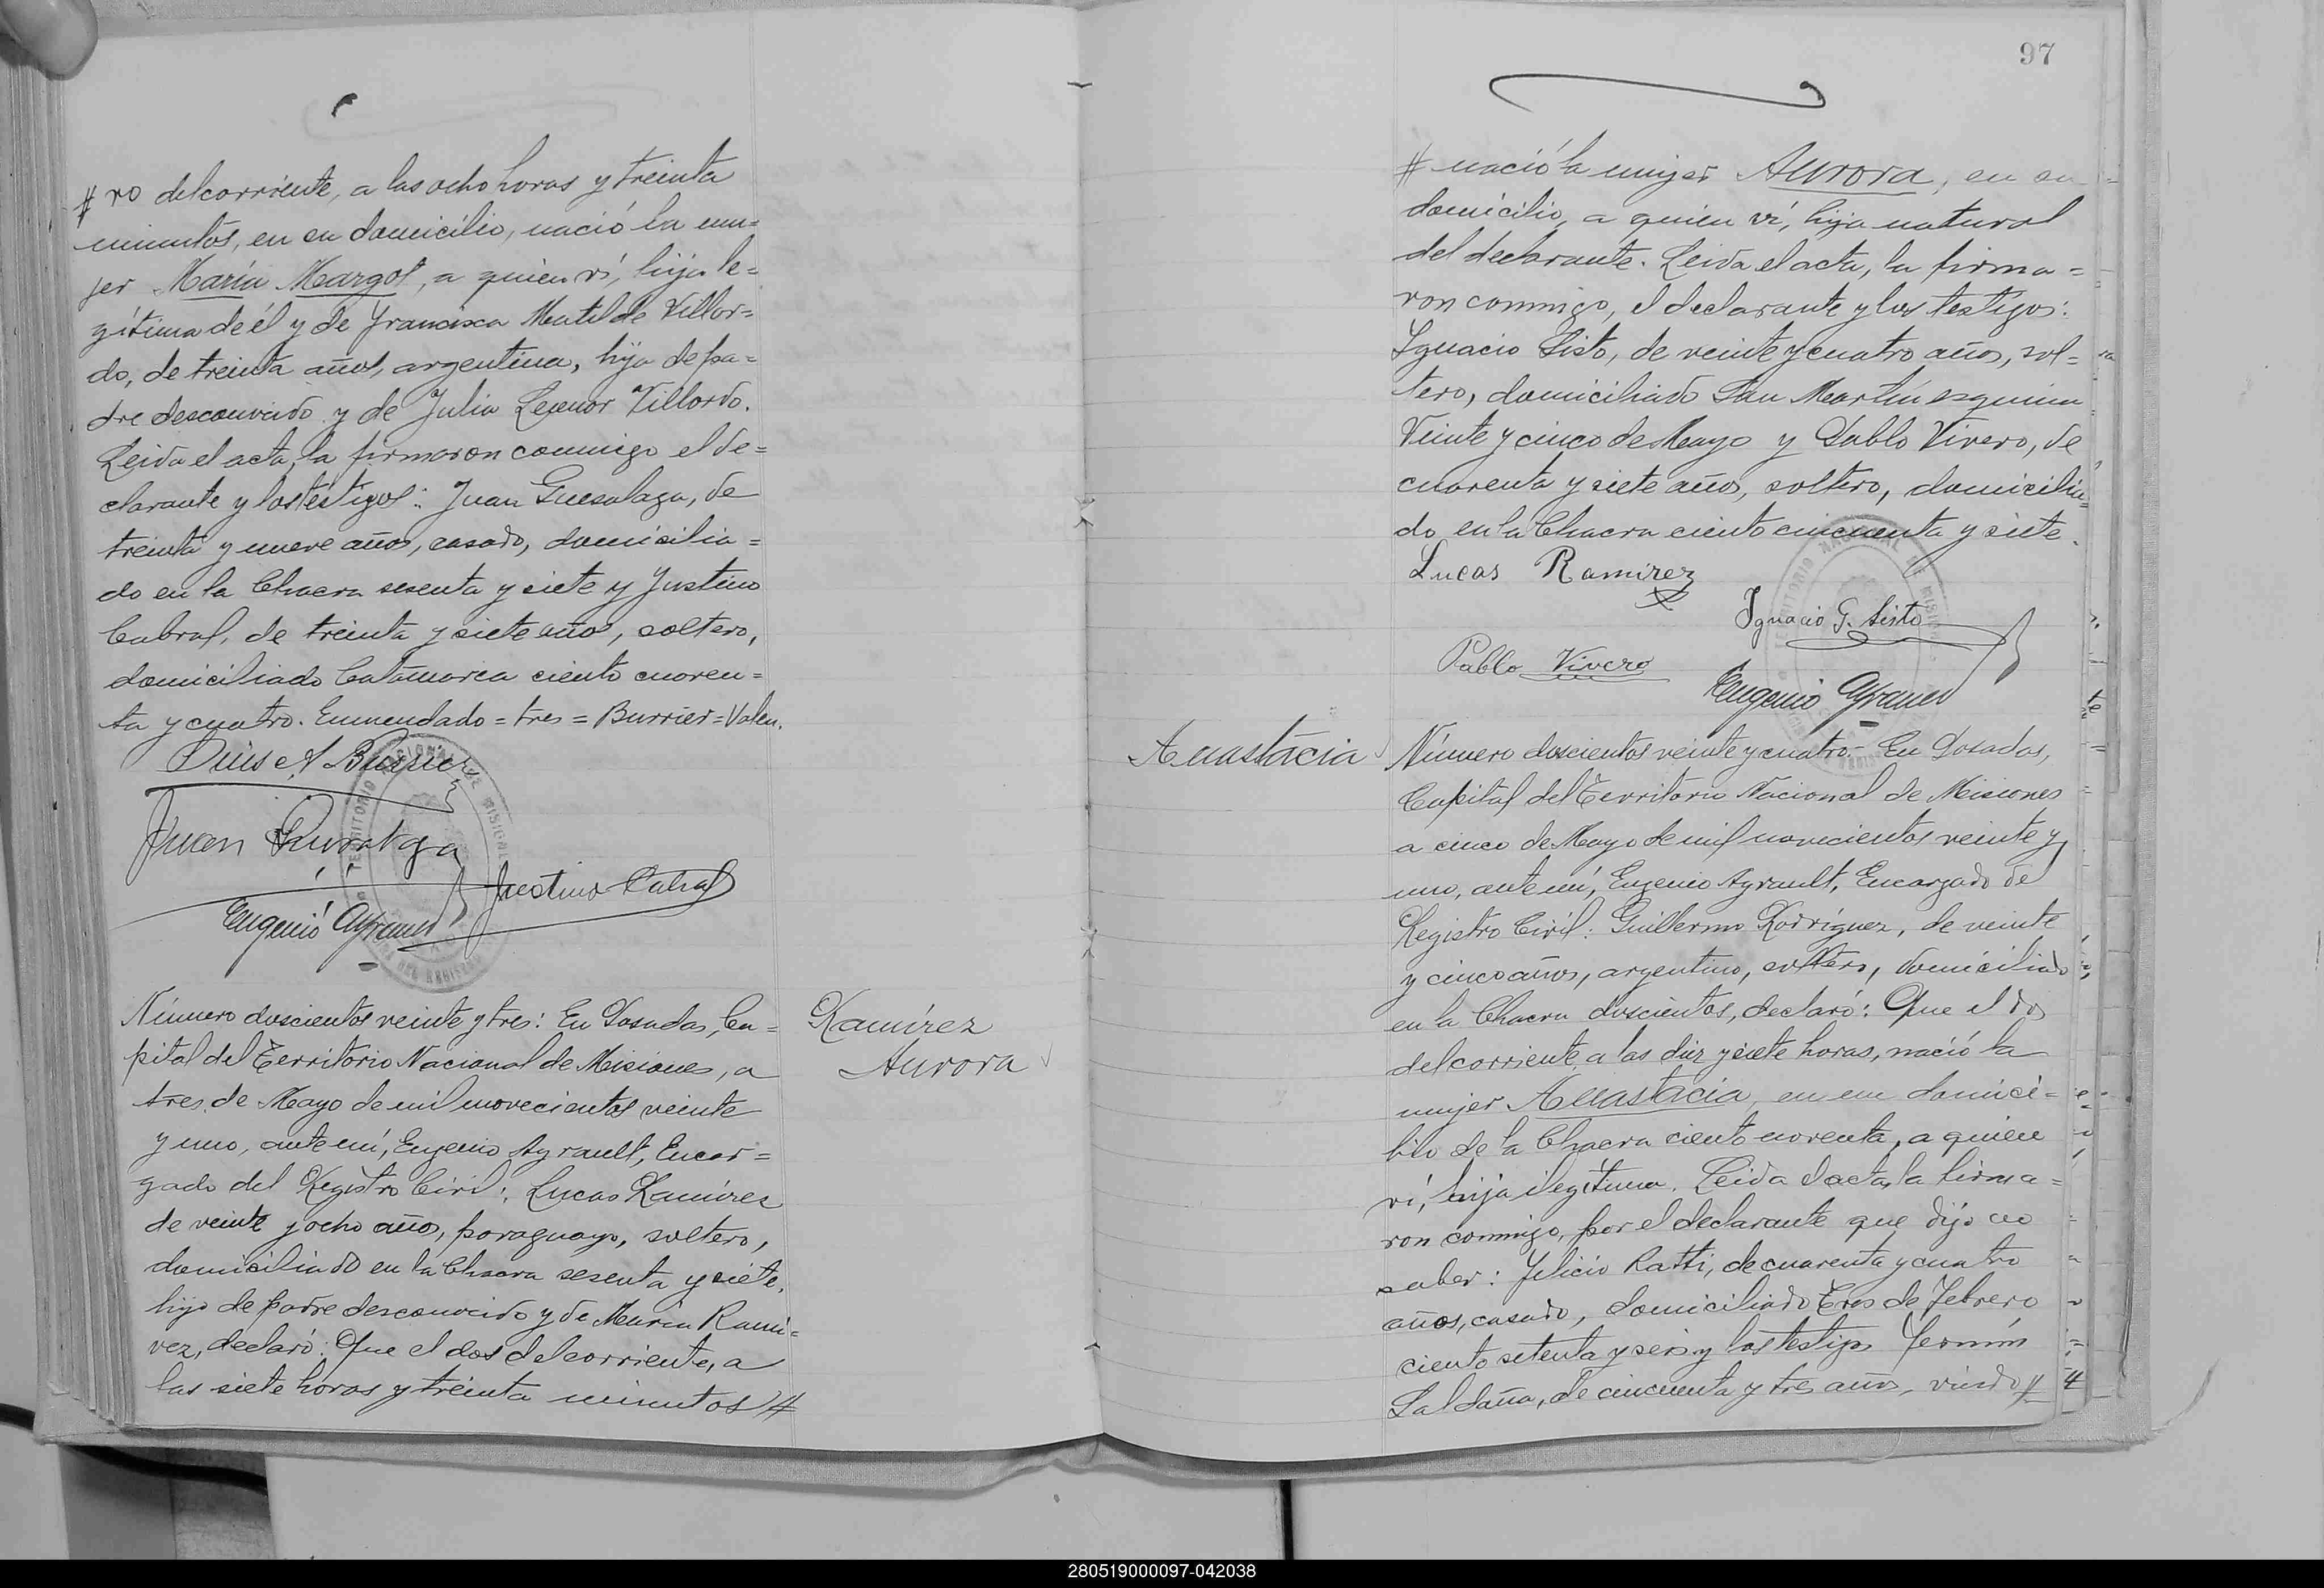 # ro del corriente, a las ocho horas y treinta
minutos, en su domicilio, nació la mu=
jer María Margot, a quien ví, hija le=
gítima de él y de Francisca Matilde Villor=
do, de treinta años, argentina, hija de pa=
dre desconocido y de Julia Leonor Villordo.
Leida el acta, la firmaron conmigo el de=
clarante y los testigos: Juan Guesalaga, de
treinta y nueve años, casado, domicilia=
do en la Chacra sesenta y siete y Justino
Cabral, de treinta y siete años, soltero,
domiciliado Catamarca ciento cuaren=
ta y cuatro. Enmendado = tres = Burrier = Valen.
Luis A Burrier
Juan
Justino Cabral
Eugenio Ayrault
Número doscientos veinte y tres: En Posadas, Ca=
pital del Territorio Nacional de Misiones, a
tres de Mayo de mil novecientos veinte
y uno, ante mí, Eugenio Ayrault, Encar=
gado del Registro Civil: Lucas Ramírez
de veinte y ocho años, paraguayo, soltero,
domiciliado en la Chacra sesenta y siete,
hijo de padre desconocido y de María Ramí=
rez, declaró: Que el dos del corriente, a
las siete horas y treinta minutos #
Ramírez
Aurora
97
# nació la mujer Aurora, en su
domicilio, a quien ví, hija natural
del declarante. Leida el acta, la firma=
ron conmigo, el declarante y los testigos:
Ignacio Sisto, de veinte y cuatro años, sol=
tero, domiciliado San Martín esquina
Veinte y cinco de Mayo y Pablo Vivero, de
cuarenta y siete años, soltero, domicilia=
do en la Chacra ciento cincuenta y siete.
Lucas Ramirez
Ignacio G. Sisto
Pablo Vivero
Eugenio Ayrault
Anastacia
Número doscientos veinte y cuatro- En Posadas,
Capital del Territorio Nacional de Misiones
a cinco de Mayo de mil novecientos veinte y
uno, ante mí, Eugenio Ayrault, Encargado de
Registro Civil: Guillermo Rodríguez, de veinte
y cinco años, argentino, soltero, domiciliado
en la Chacra doscientos, declaró: Que el dos
del corriente, a las diez y siete horas, nació la
mujer Anastacia, en su domici=
lio de la Chacra ciento noventa, a quien
ví, hija ilegítima. Leida el acta, la firma=
ron conmigo, por el declarante que dijo no
saber: Felicio Ratti, de cuarenta y cuatro
años, casado, domiciliado Tres de Febrero
ciento setenta y seis y los testigos Fermín
Saldaña, de cincuenta y tres años, viudo #
280519000097-042038